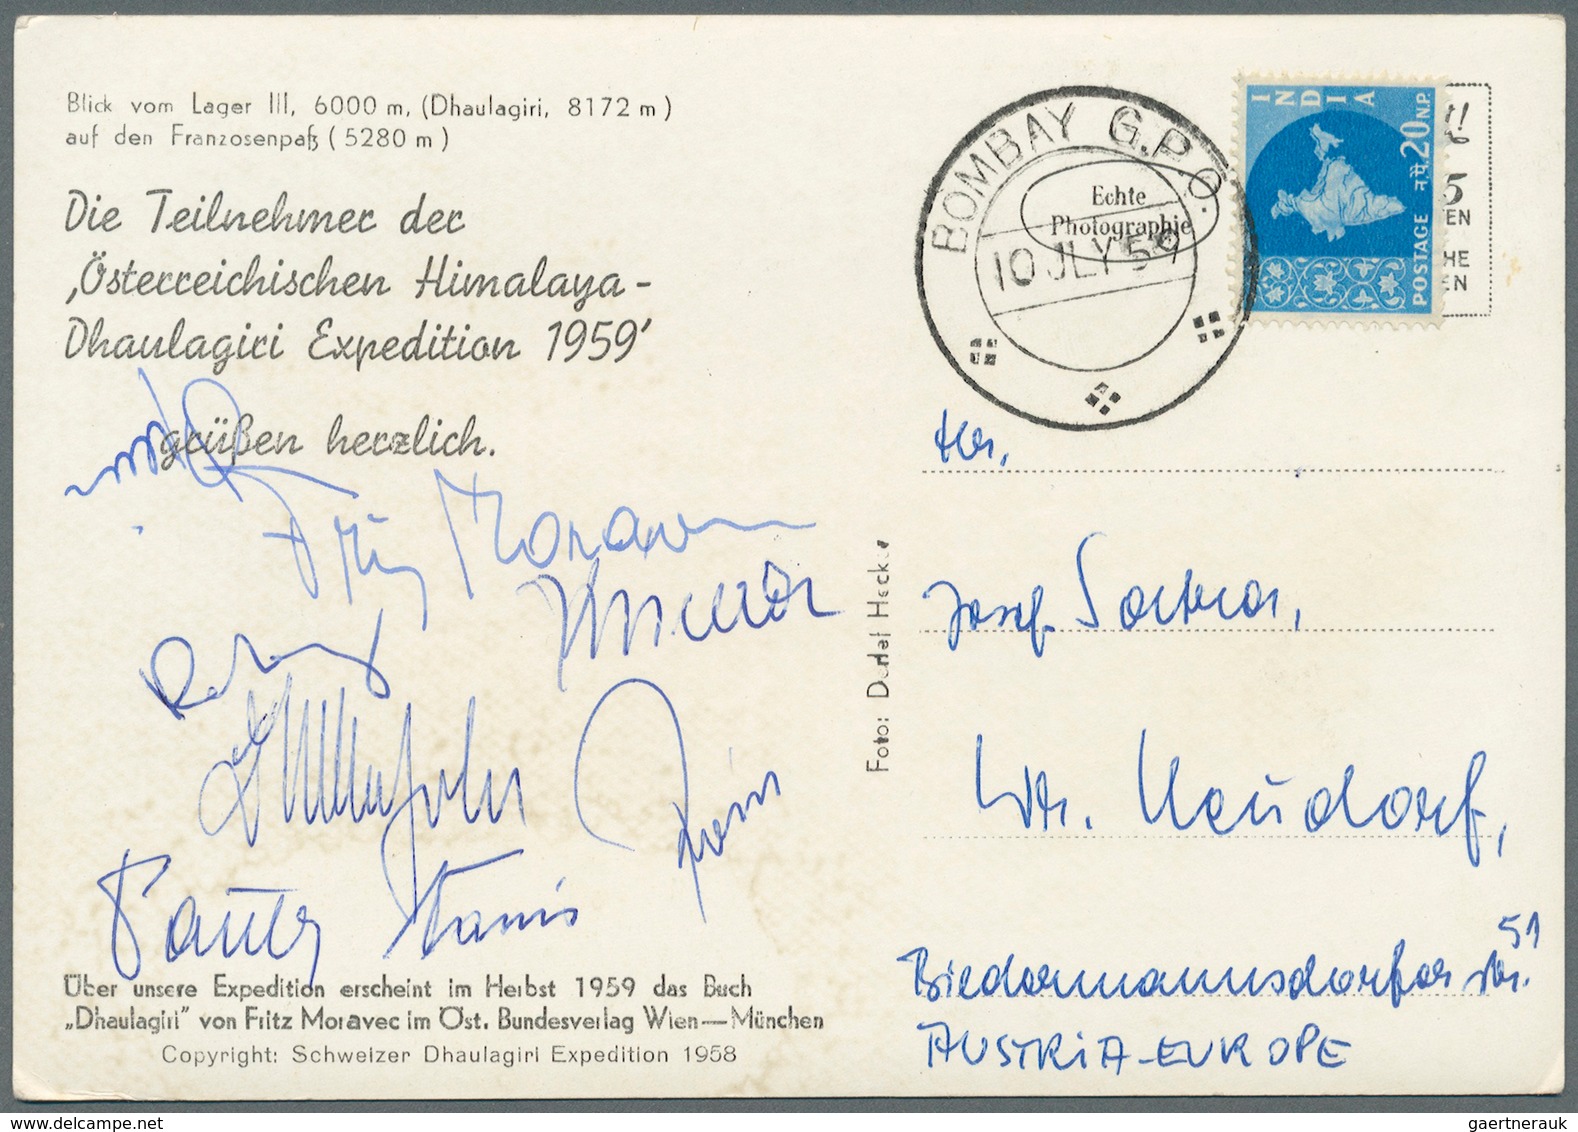 Blick vom Lager III, 6000 m, (Dhaulagiri, 8172 m)
auf den Franzosenpaß (5280 m)
Die Teilnehmer der
‚Österreichischen Himalaya-
Dhaulagiri Expedition 1959'
grüßen herzlich.
Fritz Moravec
Stanis
Über unsere Expedition erscheint im Herbst 1959 das Buch
„Dhaulagiri" von Fritz Moravec im Öst. Bundesverlag Wien—München
Copyright: Schweizer Dhaulagiri Expedition 1958
Foto: Detlef Hecker
BOMBAY G.P.O.
10 JLY 59
Echte
Photographie
INDIA
POSTAGE न.पै. 20 N.P.
5
EN
HE
EN
Josef
Wr. Neudorf,
Biedermannsdorfer Str. 51
AUSTRIA-EUROPE
gaertnerauk